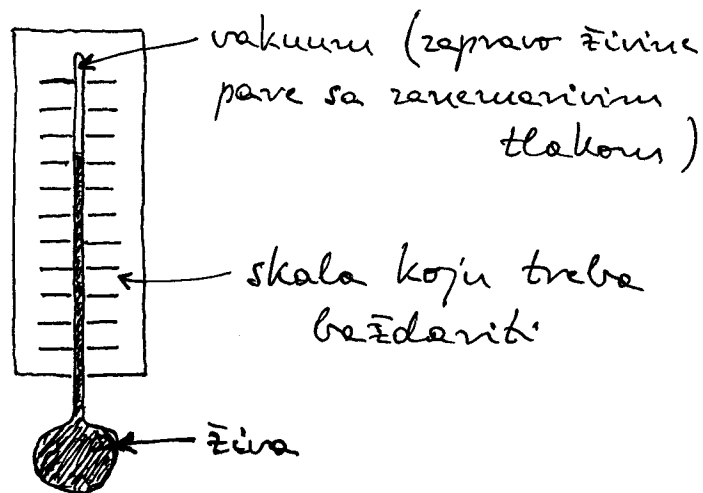 vakuum (zapravo živine
pare sa zanemarivim
tlakom)
skala koju treba
baždariti
živa